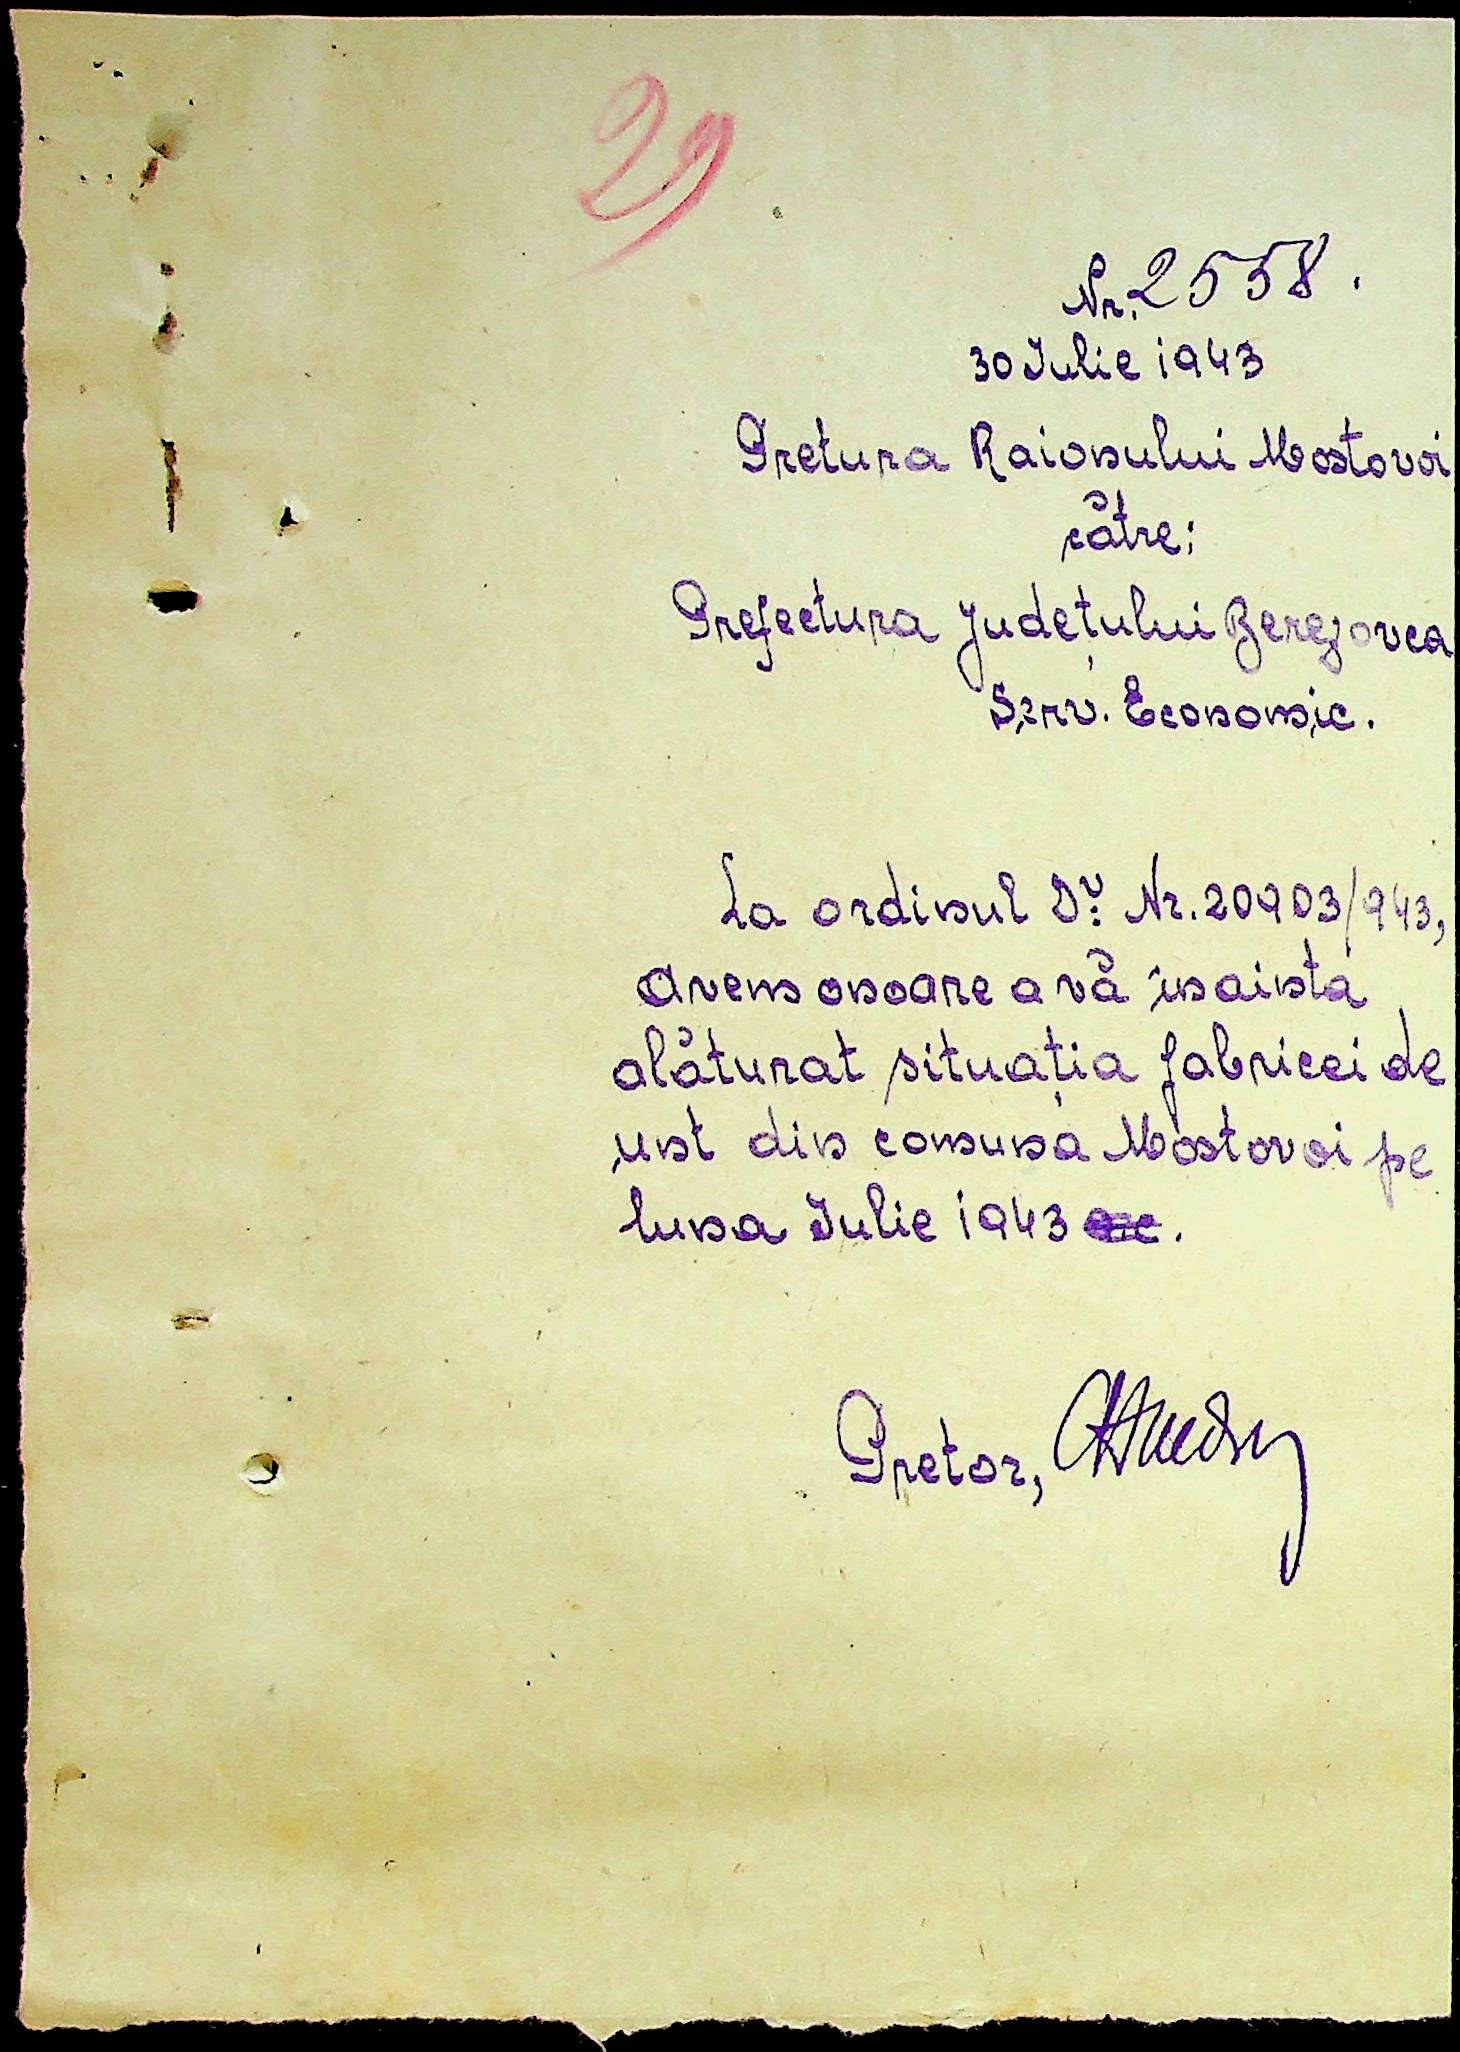 29
Nr. 2558.
30 Iulie 1943
Pretura Raionului Mostovoi
către:
Prefectura Județului Berezovca
Serv. Economic.
La ordinul Dv: Nr. 20903/943,
avem onoare a vă înainta
alăturat situația fabricei de
unt din comuna Mostovoi pe
luna Iulie 1943.
Pretor,